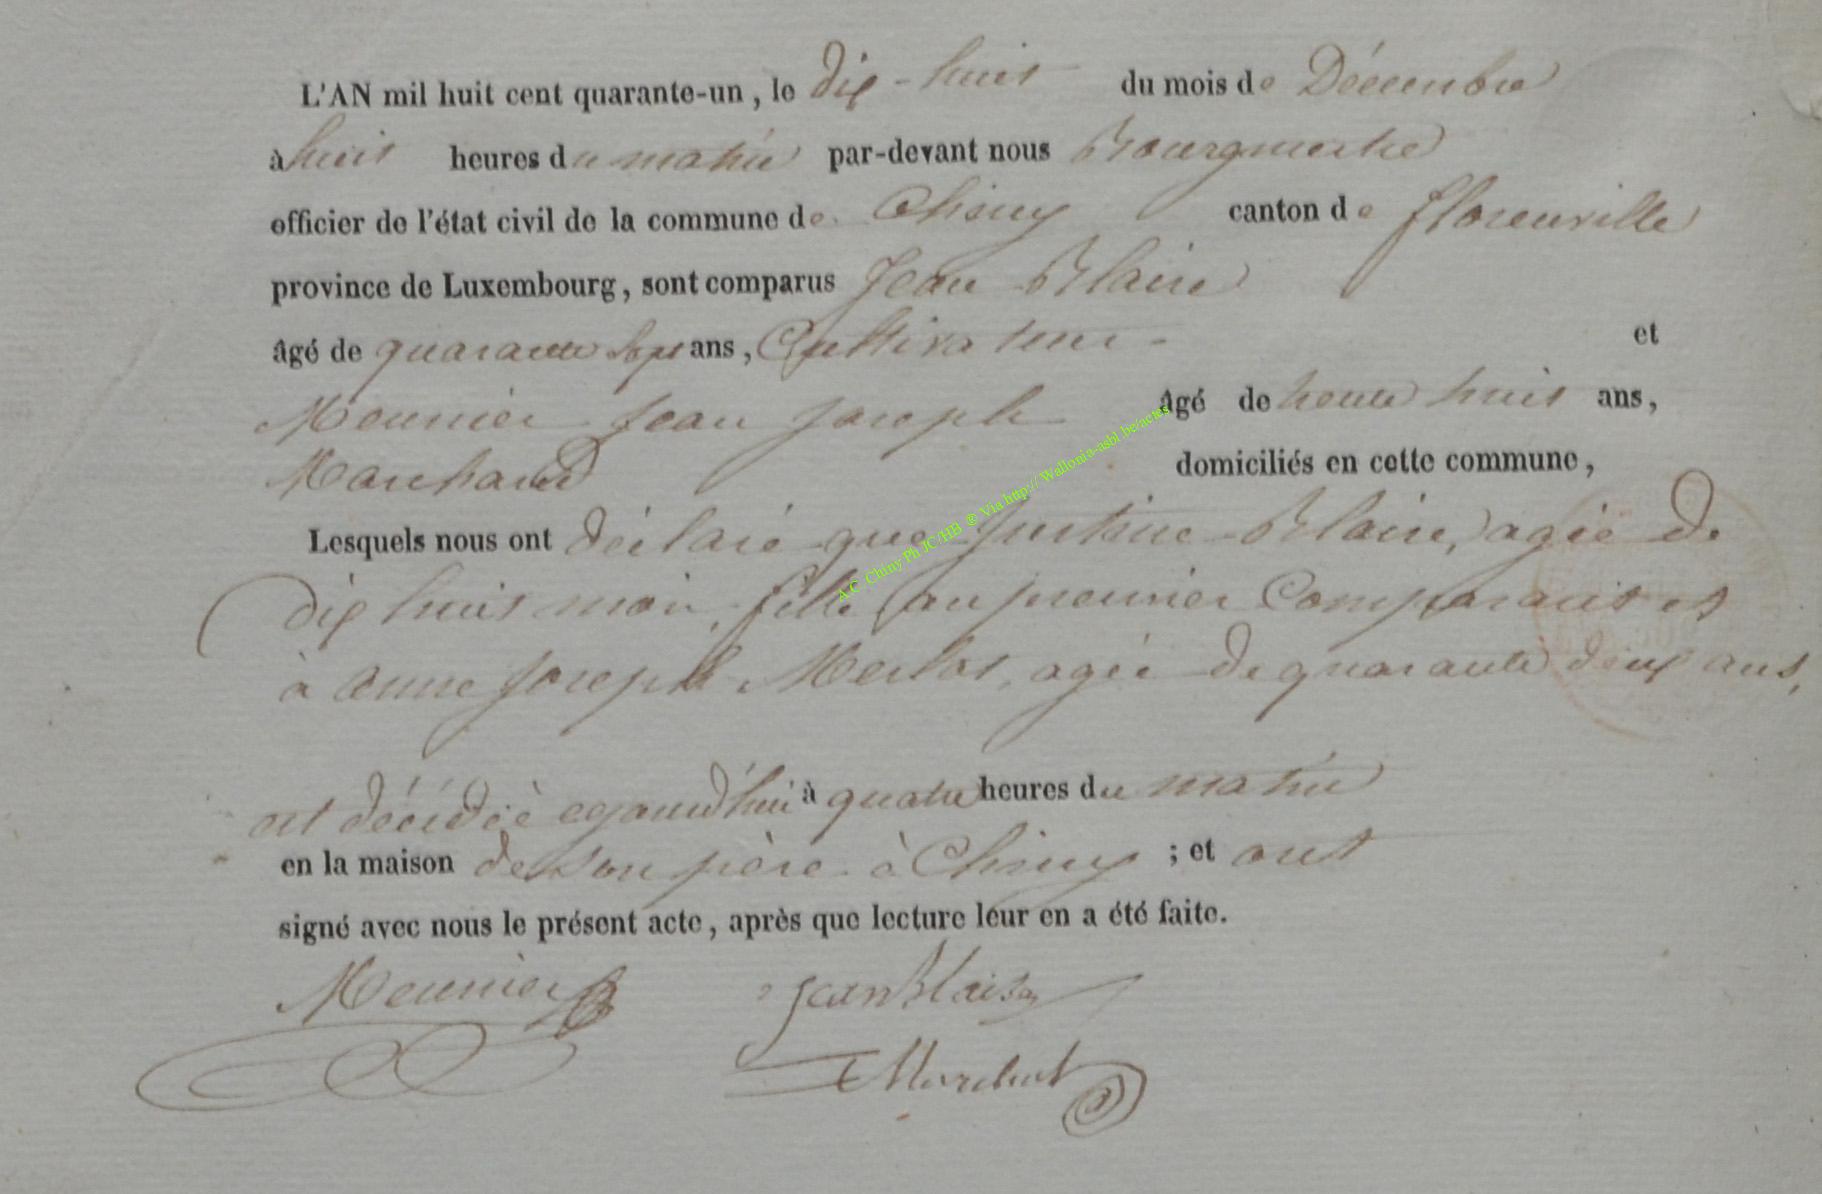 L'AN mil huit cent quarante-un, le dix-huit du mois de Décembre
à huit heures du matin par-devant nous Bourgmestre
officier de l'état civil de la commune de Chiny canton de florenville
province de Luxembourg, sont comparus Jean Blaise
âgé de quarante sept ans, Cultivateur - et
Meunier Jean Joseph âgé de trente huit ans,
Marchand domiciliés en cette commune,
Lesquels nous ont déclaré que Justine Blaise, agée de
dix huit mois, fille au premier Comparant et
à anne joseph agée de quarante deux ans,
est décédée aujourd'hui à quatre heures du matin
en la maison de son père à Chiny ; et ont
signé avec nous le présent acte, après que lecture leur en a été faite.
Meunier Jean Blaise
A.C Chiny Ph JC/HB ® Via http:// Wallonia-asbl.be/actes